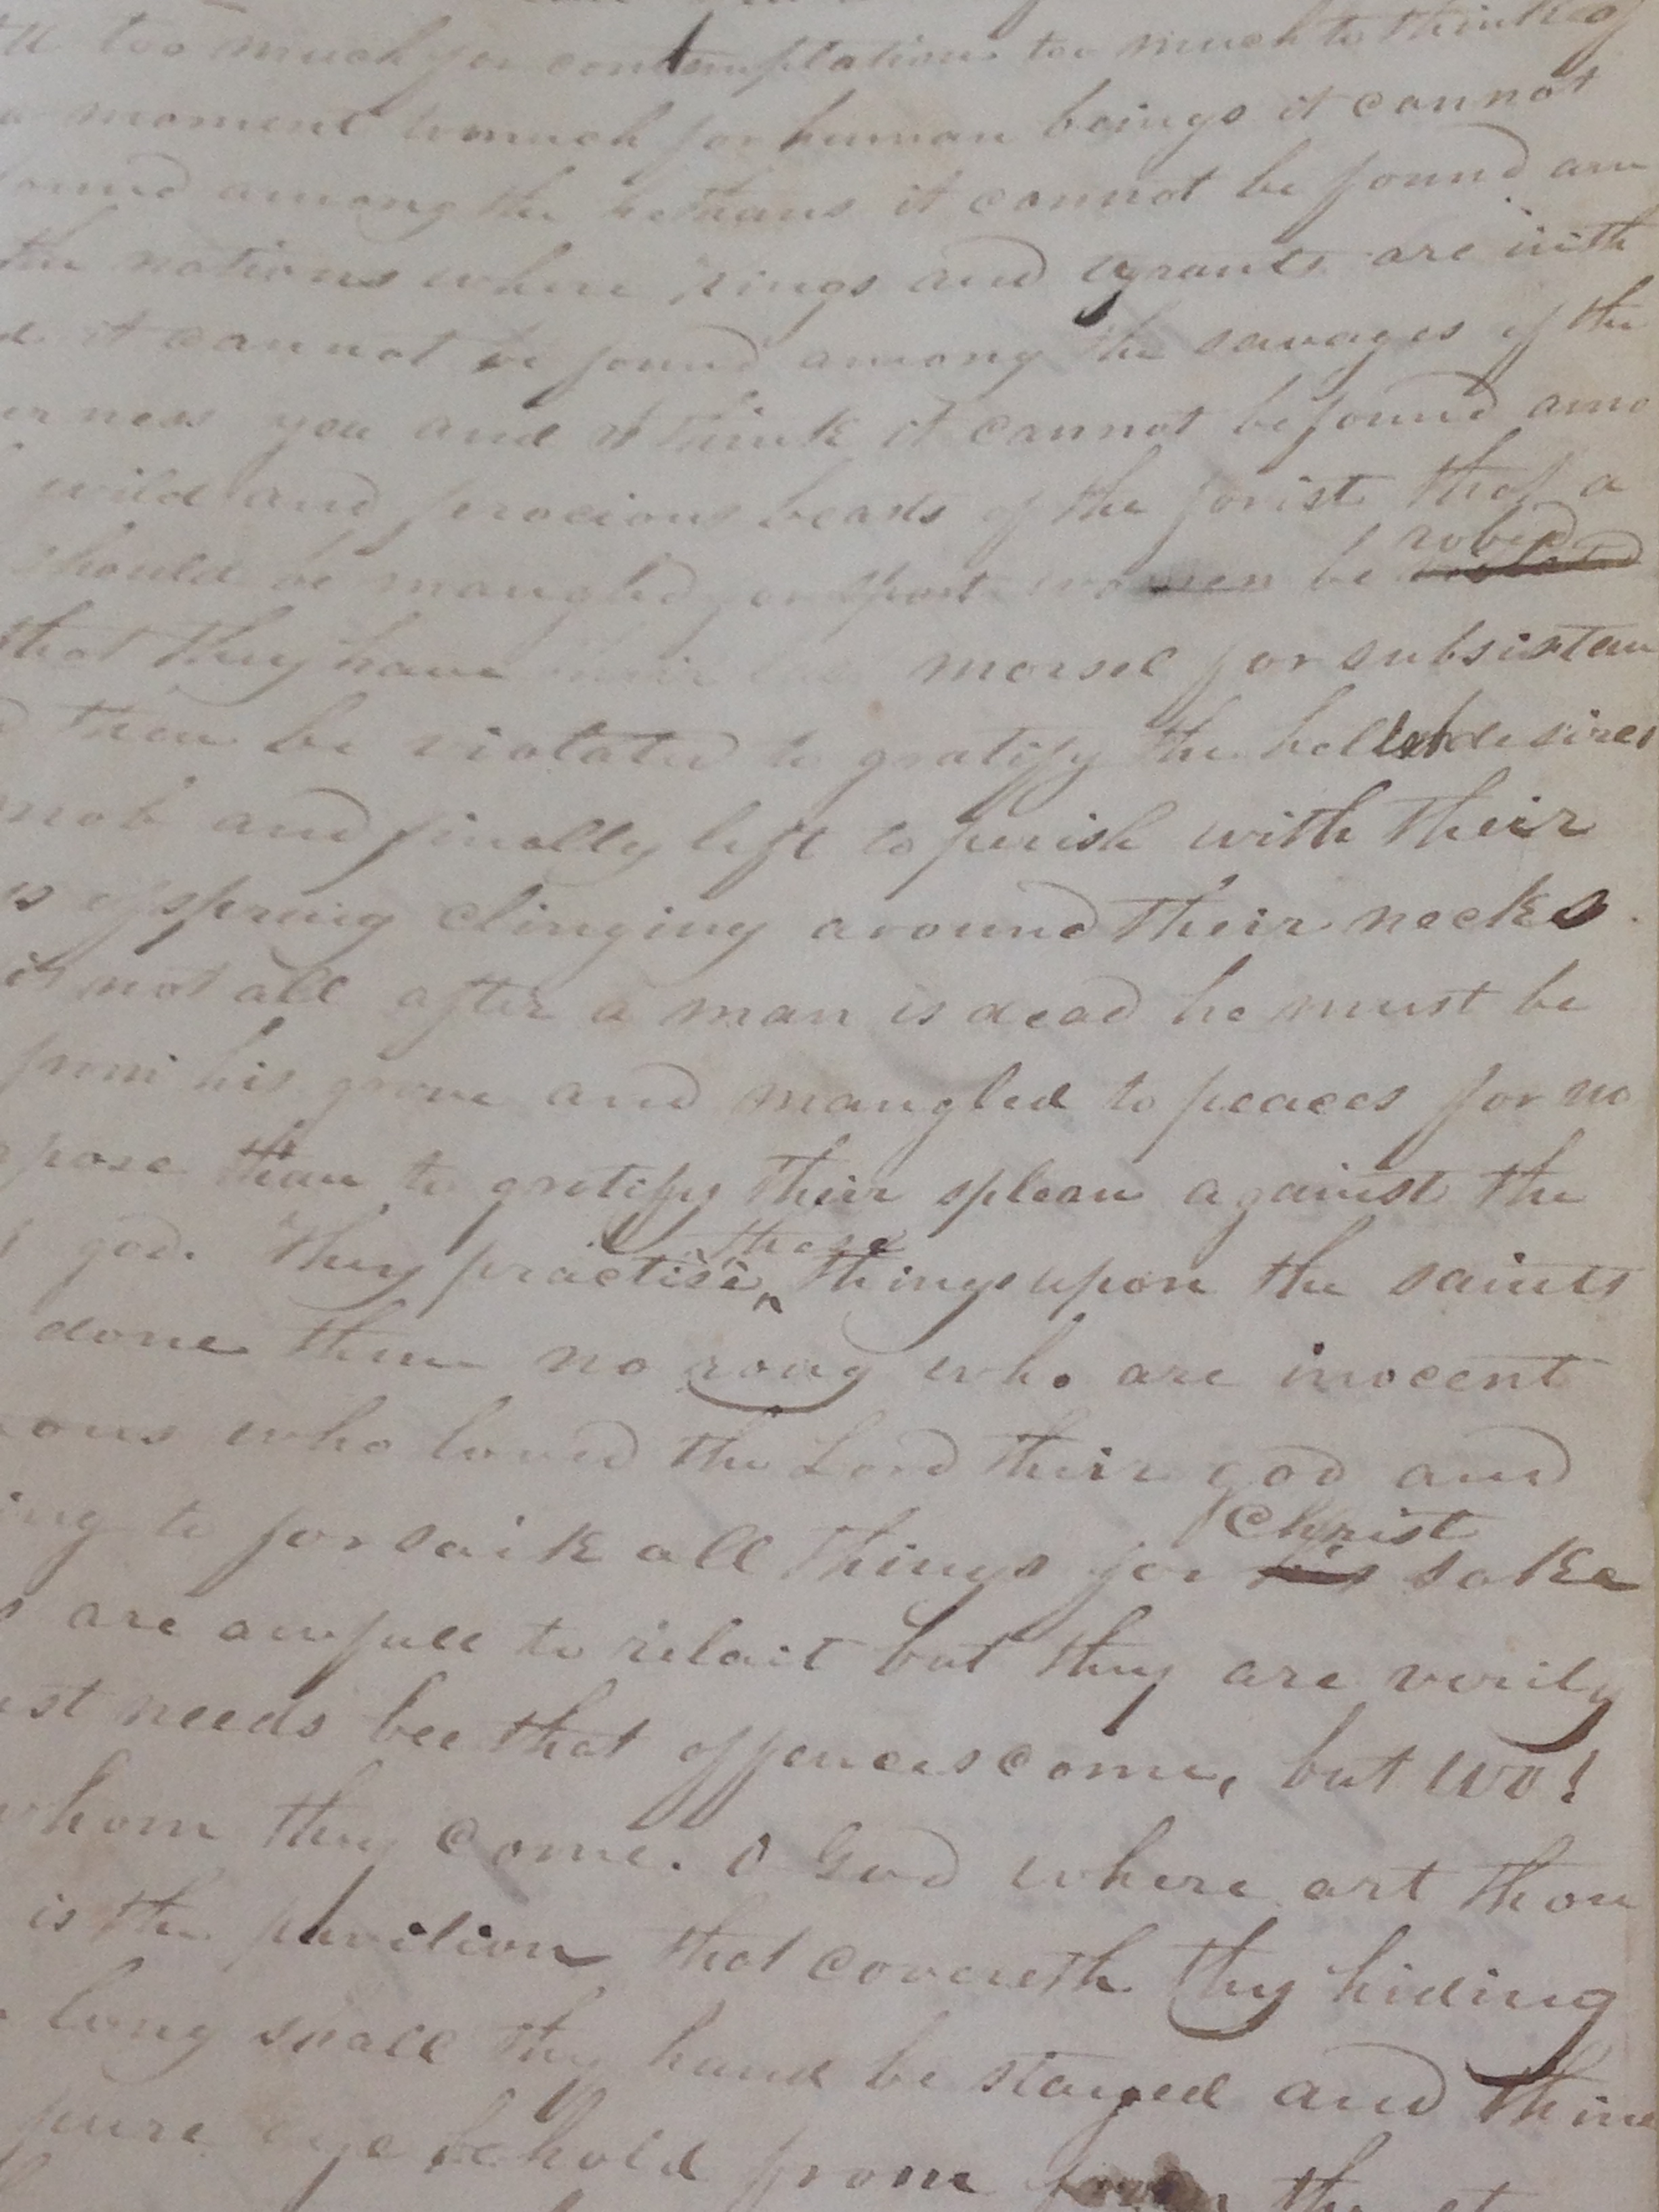 too much for contemplation too much to think of
moment to much for human beings it cannot
found among the hethans it cannot be found am
the nations where kings and tyrants are inth
it cannot be found among the savages of the
erness yea and I think it cannot be found amo
wild and ferocious beasts of the forist that a
should be mangled for sport women be robed
that they have morsel for subsistan
then be violated to gratify the hellish desires
mob and finally left to perish with their
s ofspring clinging around their necks
is not all after a man is dead he must be
from his grave and mangled to peaces for no
pose than to gratify their splean against the
god. They practise these things upon the saints
done them no rong who are inocent
ous who loved the Lord their god and
ing to forsaik all things for Christ sake
are awfull to relait but they are verily
ust needs bee that offences come, but WO!
whom they come. O God where art thou
is the pavilion that covereth thy hiding
long shall thy hand be stayed and thine
pure eye behold from the